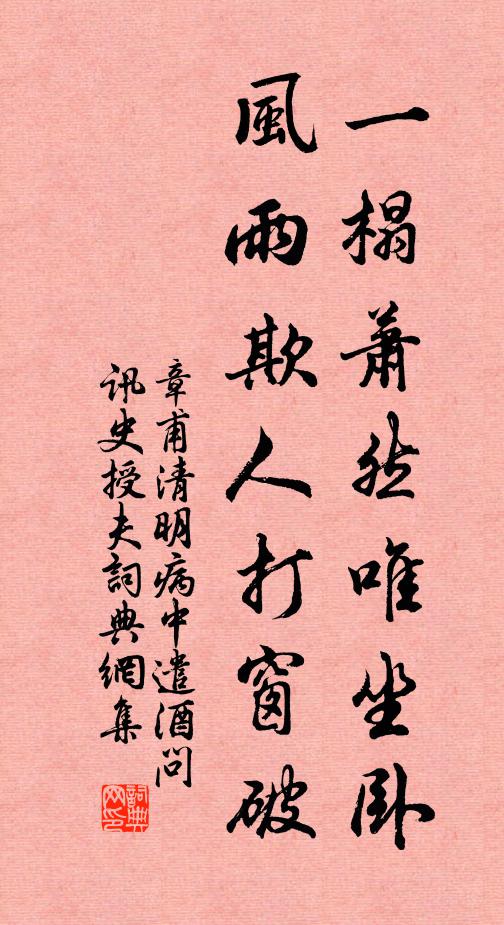 一榻蕭然唯坐卧
風雨欺人打窗破
章甫清明病中遣酒問
訊史授夫詞典網集
詞典网印